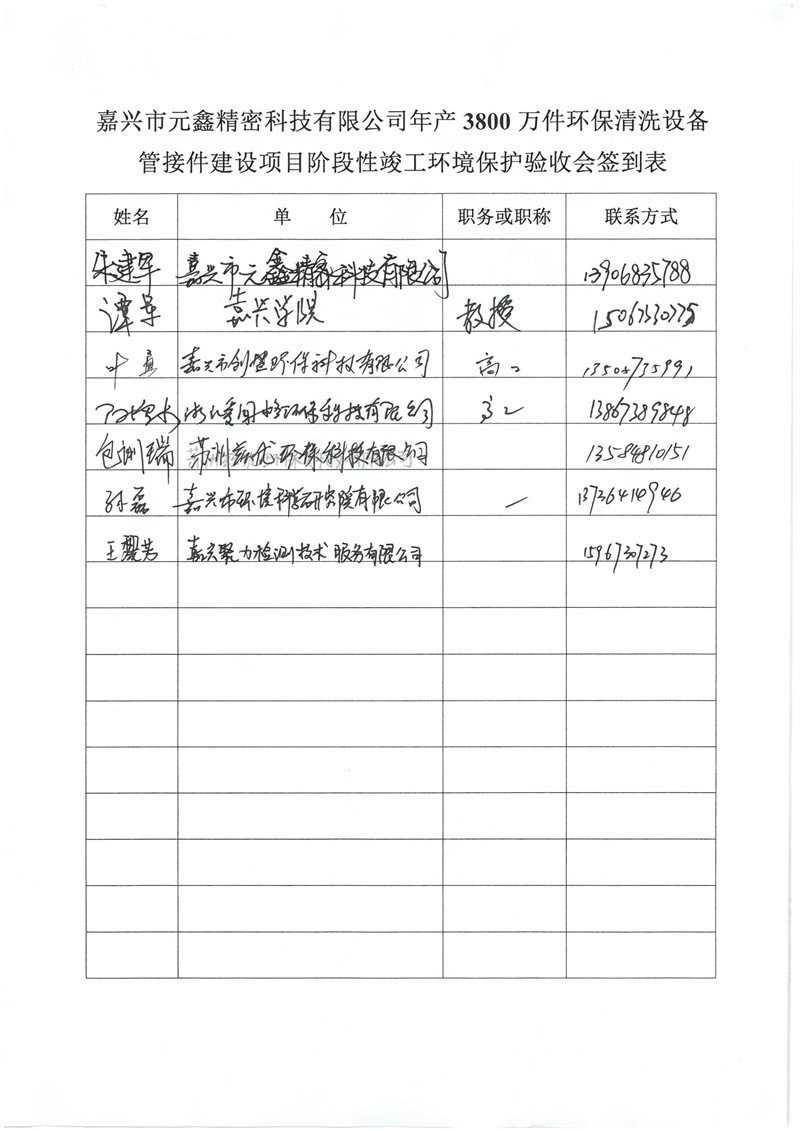 嘉兴市元鑫精密科技有限公司年产 3800 万件环保清洗设备
管接件建设项目阶段性竣工环境保护验收会签到表
姓名 单 位 职务或职称 联系方式
朱建军 嘉兴市元鑫精密科技有限公司 13906835788
谭军 嘉兴学院 教授
叶 嘉兴市创 环保科技有限公司 高工
环保科技有限公司 高工 13867389848
包洲瑞 苏州 优环保科技有限公司 13584810151
孙磊 嘉兴市环境科学研究院有限公司 13736414946
王 芳 嘉兴聚力检测技术服务有限公司 15967307273